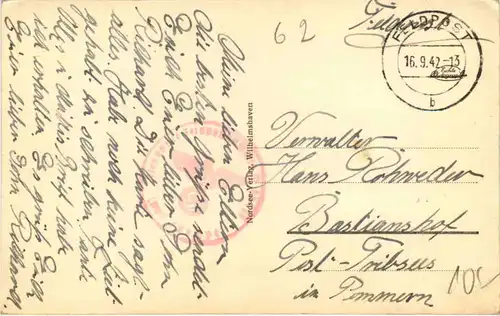 62
Feldpost
FELDPOST
16.9.42.-13
b
Meine lieben Eltern
Die besten Grüsse sendet
Euch Euer lieber Sohn
Richard. Die Karte sagt
alles. Hab noch keine Zeit
gehabt zu schreiben
Alles ist das Brief habe
ich erhalten Es grüsst Euch
Euer lieber Sohn Richard.
Nordsee-Verlag, Wilhelmshaven
Verwalter
Hans Rohweder
Bastianshof
Post-Tribsees
in Pommern